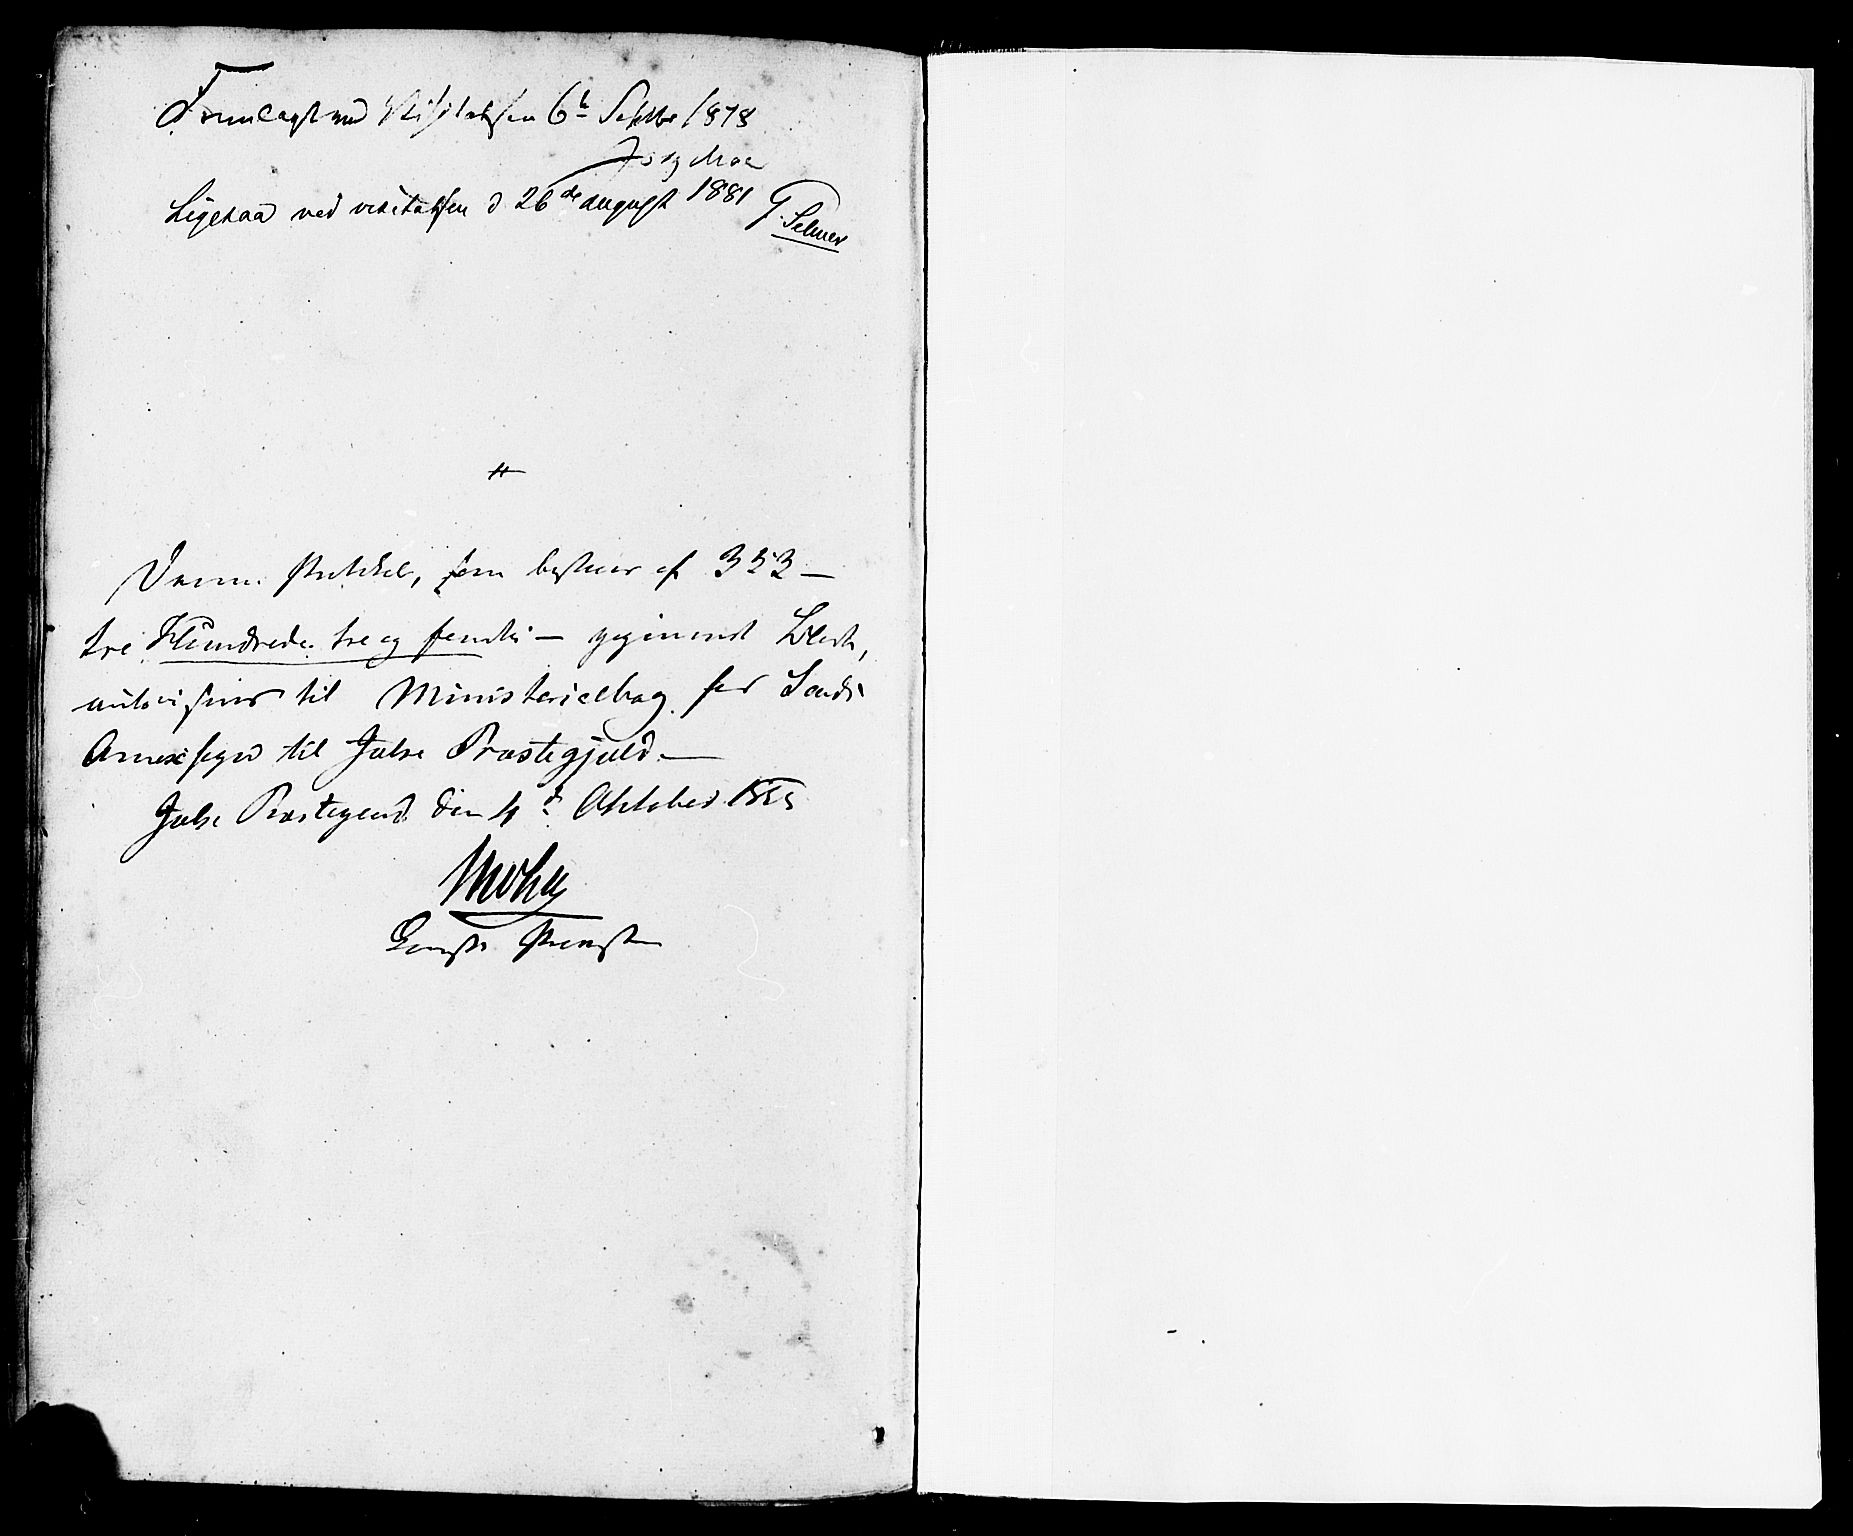 Fremlagt ved Visitatsen 6t Septbr 1878
Jørg Moe
Ligesaa ved visitatsen d 26de august 1881 J. Selmer
Denne Protokol, som bestaar af 353 —
tre Hundrede tre og femti — gjennemdr Blade,
autoriseres til Ministerialbog for Lands
Annexsogn til Jølse Præstegjæld. —
Jølse Præstegaard den 4de Oktober 1855
Const. Provst